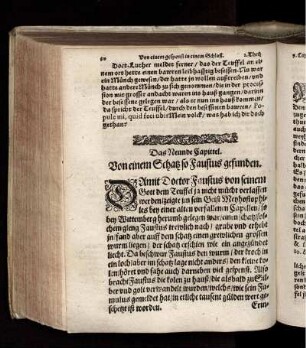 90 Von einem gespenst in einem Schloß. 1. Theil
Doct. Luther meldet ferner / das der Teuffel an ei-
nem ort hette einen bawren leibhafftig besessen. Nu war
ein Münch gewesen / der hatte jn wollen außtreiben / und
hatte andere Münch zu sich genommen / die in der proces-
sion mit grosser andacht waren ins hauß gangen / darinn
der besessene gelegen war / als er nun ins hauß kommen /
da spricht der Teuffel / durch den besessenen bawren / Po-
pule mi, quid feci tibi? Mein volck / was hab ich dir doch
gethan?
Das Neunde Capitel.
Von einem Schatz so Faustus gefunden.
DAmit Doctor Faustus von seinem
Gott dem Teuffel ja nicht mächt verlassen
werden / zeigte jm sein Geist Mephostophi-
les bey einer alten verfallenen Capellen / so
bey Wittemberg herumb gelegen war / einen schatz / sol-
chem gieng Faustus trewlich nach / grabe und erhebt
jn / fand aber auff dem schatz einen grewlichen grossen
wurm liegen / der schatz erschien wie ein angezündet
liecht. Da beschwur Faustus den wurm / der kroch in
ein loch / aber im schatz lage nicht anders / denn kleine ko-
len / höret und sahe auch darneben viel gespenst. Also
bracht Faustus die kolen zu hauß / die alsbald zu Sil-
ber und golt verwandelt wurden / welchs / wie sein Fa-
mulus gemeldt hat / in etliche tausent gülden wert ge-
schetzt ist worden.